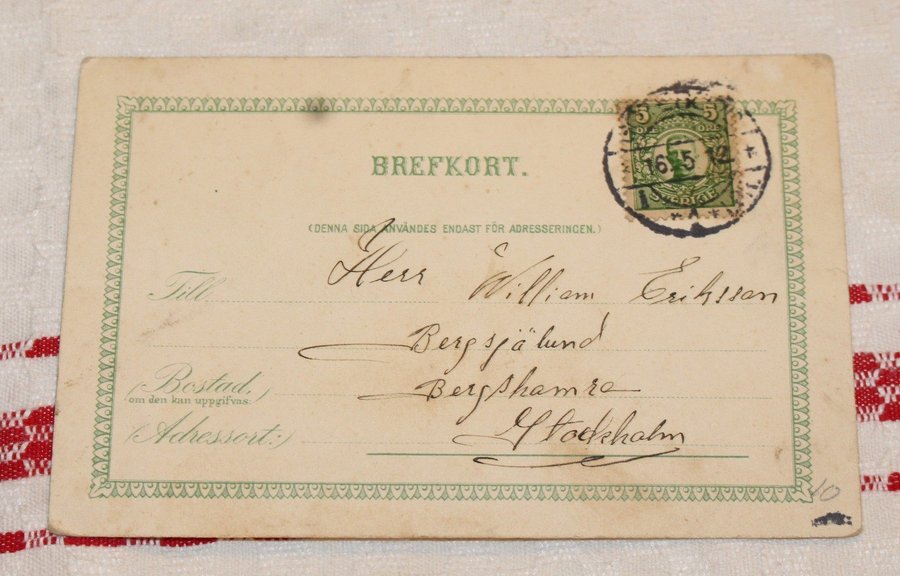 5 5
16 5 12
SVERIGE
BREFKORT.
(DENNA SIDA ANVÄNDES ENDAST FÖR ADRESSERINGEN.)
Till Herr William Eriksson
Bergsjölund
(Bostad, Bergshamra
om den kan uppgifvas:
(Adressort:) Stockholm
10